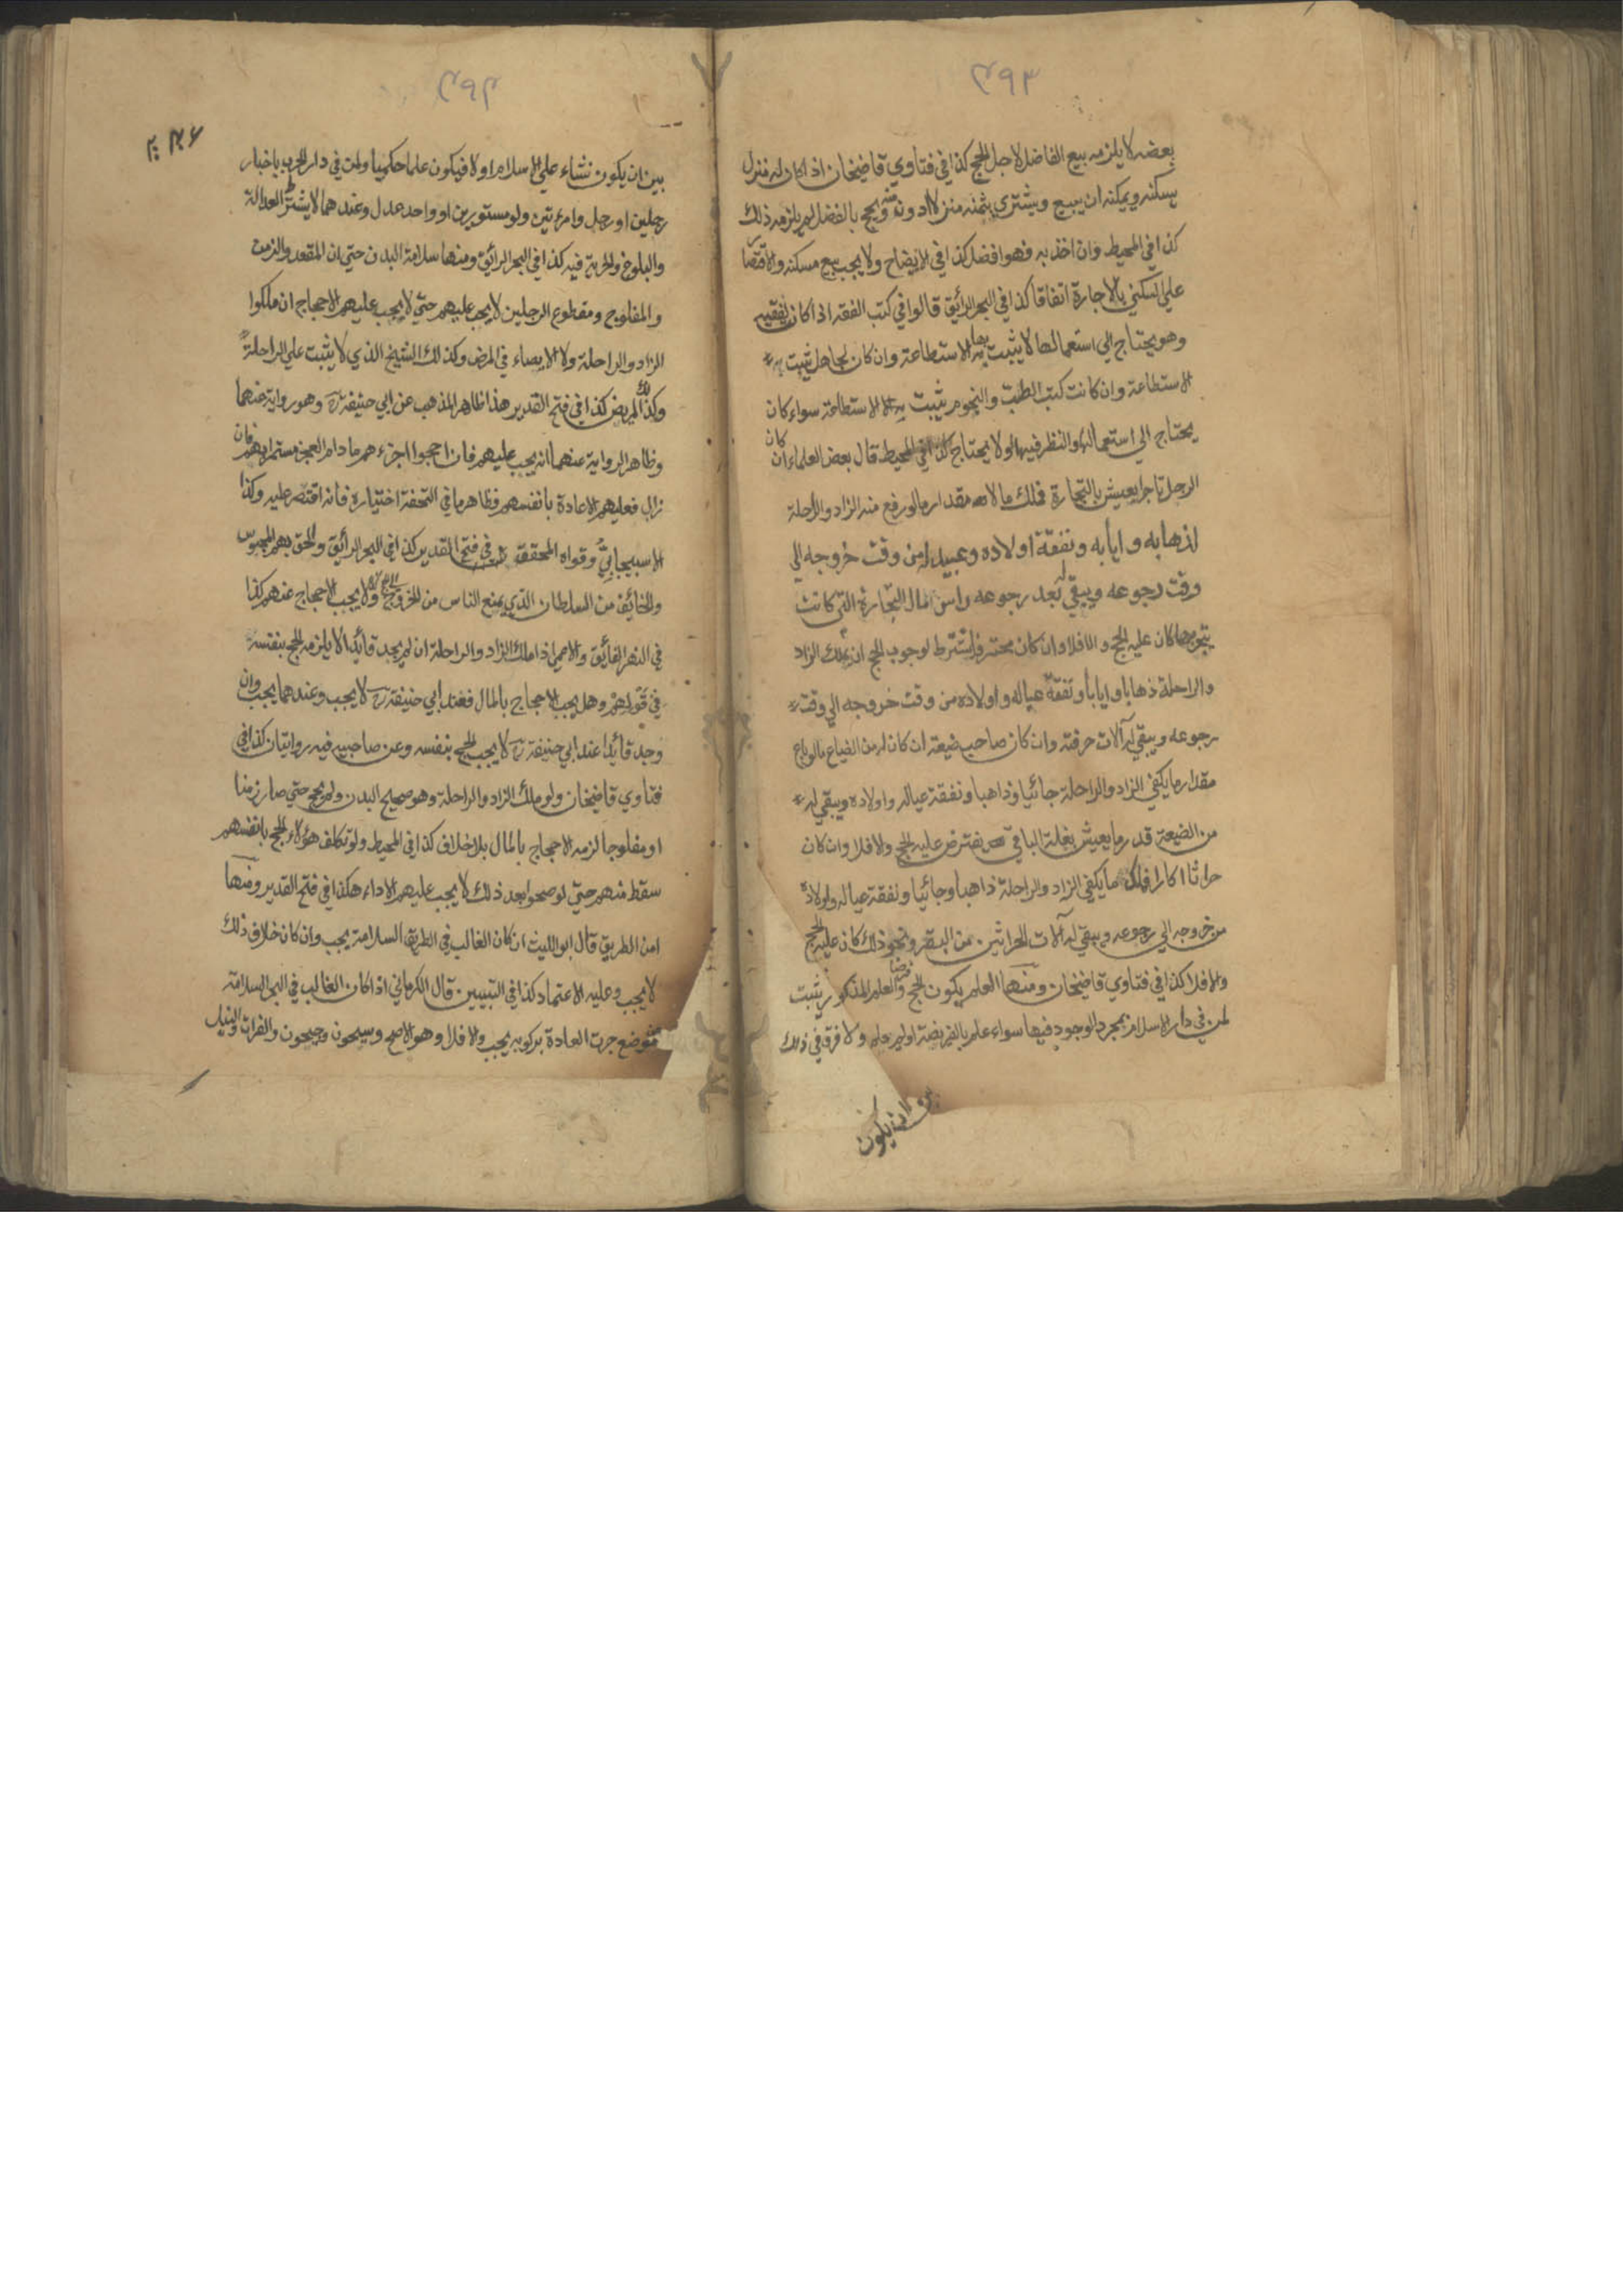 ٣٩٣
بعضه لا يلزمه بيع الفاضل لاجل الحج كذا في فتاوي قاضيخان اذا كان له منزل
يسكنه ويمكنه ان يبيع ويشتري بثمنه منزلا ادونه منه ويحج بالفضل لم يلزمه ذلك
كذا في المحيط وان اخذ به فهو افضل كذا في الايضاح ولا يجب بيع مسكنه والاقتصار
علي السكني بالاجارة اتفاقا كذا في البحر الرائق قالوا في كتب الفقه اذا كان لفقيه
وهو يحتاج الي استعمالها لا يثبت بها الاستطاعة وان كان لجاهل يثبت به
الاستطاعة وان كانت كتب الطب والنجوم يثبت به الاستطاعة سواء كان
يحتاج الي استعمالها والنظر فيها او لا يحتاج كذا في المحيط قال بعض العلماء ان كان
الرجل تاجرا يعيش بالتجارة فملك مالا مقدار ما لو رفع منه الزاد والراحلة
لذهابه وايابه ونفقة اولاده وعبيده من وقت خروجه الي
وقت رجوعه ويبقي له بعد رجوعه راس المال التجارة التي كانت
يتجر بها كان عليه الحج والا فلا وان كان محترفا يشترط لوجوب الحج ان يملك الزاد
والراحلة ذهابا وايابا ونفقة عياله واولاده من وقت خروجه الي وقت
رجوعه ويبقي له آلات حرفته وان كان صاحب ضيعة ان كان له من الضياع ما لو باع
مقدار ما يكفي الزاد والراحلة جائيا وذاهبا ونفقة عياله واولاده ويبقي له
من الضيعة قدر ما يعيش بغلة الباقي يفترض عليه الحج والا فلا وان كان
حراثا اكارا فملك ما يكفي الزاد والراحلة ذاهبا وجائيا ونفقة عياله واولاده
من خروجه الي رجوعه ويبقي له آلات الحراثين من البقر ونحو ذلك كان عليه الحج
والا فلا كذا في فتاوي قاضيخان ومنها العلم بكون الحج فرضا والعلم المذكور يثبت
لمن في دار الاسلام بمجرد الوجود فيها سواء علم بالفريضة او لم يعلم ولا فرق في ذلك
بين ان يكون
٣٩٤
بين ان يكون نشاء علي الاسلام او لا فيكون علما حكميا ولمن في دار الحرب باخبار
رجلين او رجل وامرءتين ولو مستورين او واحد عدل وعندهما لا يشترط العدالة
والبلوغ والحرية فيه كذا في البحر الرائق ومنها سلامة البدن حتي ان المقعد والزمن
والمفلوج ومقطوع الرجلين لا يجب عليهم حتي لا يجب عليهم الاحجاج ان ملكوا
الزاد والراحلة ولا الايصاء في المرض وكذلك الشيخ الذي لا يثبت علي الراحلة
وكذلك المريض كذا في فتح القدير هذا ظاهر المذهب عن ابي حنيفة رح وهو رواية عنهما
وظاهر الرواية عنهما انه يجب عليهم فان احجوا اجزءهم ما دام العجز مستمرا بهم فان
زال فعليهم الاعادة بانفسهم فظاهر ما في التحفة اختياره فانه اقتصر عليه وكذا
الاسبيجابي وقواه المحقق في فتح القدير كذا في البحر الرائق والحق بهم المحبوس
والخائف من السلطان الذي يمنع الناس من الخروج الي الحج ولا يجب الاحجاج عنهم كذا
في النهر الفائق والاعمي اذا ملك الزاد والراحلة ان لم يجد قائدا لا يلزمه الحج بنفسه
في قولهم وهل يجب الاحجاج بالمال فعند ابي حنيفة رح لا يجب وعندهما يجب وان
وجد قائدا عند ابي حنيفة رح لا يجب الحج بنفسه وعن صاحبيه فيه روايتان كذا في
فتاوي قاضيخان ولو ملك الزاد والراحلة وهو صحيح البدن ولم يحج حتي صار زمنا
او مفلوجا لزمه الاحجاج بالمال بلا خلاف كذا في المحيط ولو تكلف هؤلاء الحج بانفسهم
سقط منهم حتي لو صحوا بعد ذلك لا يجب عليهم الاداء هكذا في فتح القدير ومنها
امن الطريق قال ابو الليث ان كان الغالب في الطريق السلامة يجب وان كان خلاف ذلك
لا يجب وعليه الاعتماد كذا في التبيين قال الكرماني اذا كان الغالب في البحر السلامة
من موضع جرت العادة بركوبه يجب والا فلا وهو الاصح وسيحون وجيحون والفرات والنيل